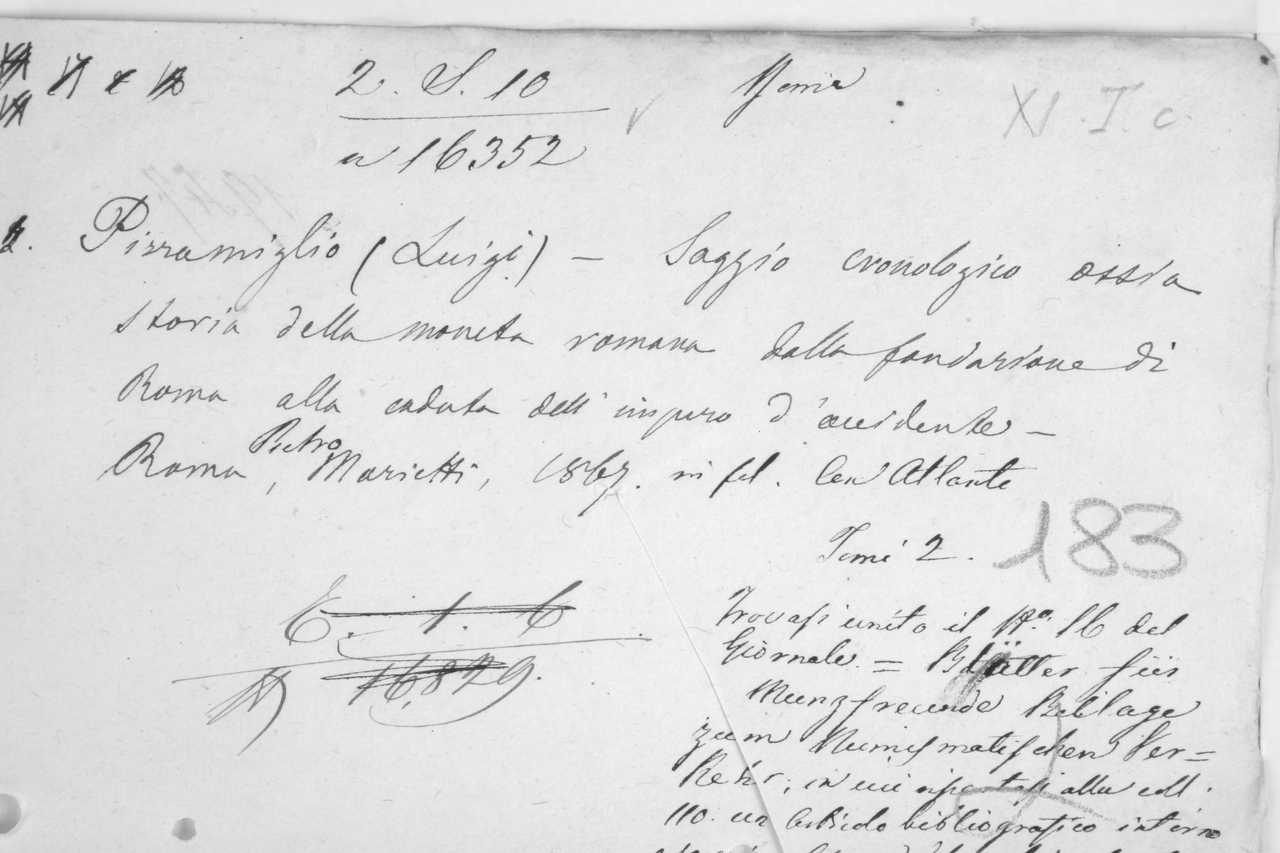 2. S. 10
XI. I. c.
n 16352
1. Pizzamiglio (Luigi) - Saggio cronologico ossia
storia della moneta romana dalla fondazione di
Roma alla caduta dell'impero d'occidente -
Roma, Pietro Marietti, 1867. in fol. Con Atlante
Tomi 2.
183
E. 1. 6
16,829.
Trovasi unito il N.o 16 del
Giornale = Blätter für
Munzfreunde Beilage
zum Numismatischen Ver=
Kehr, in cui alla coll.
110. un bibliografico intorno